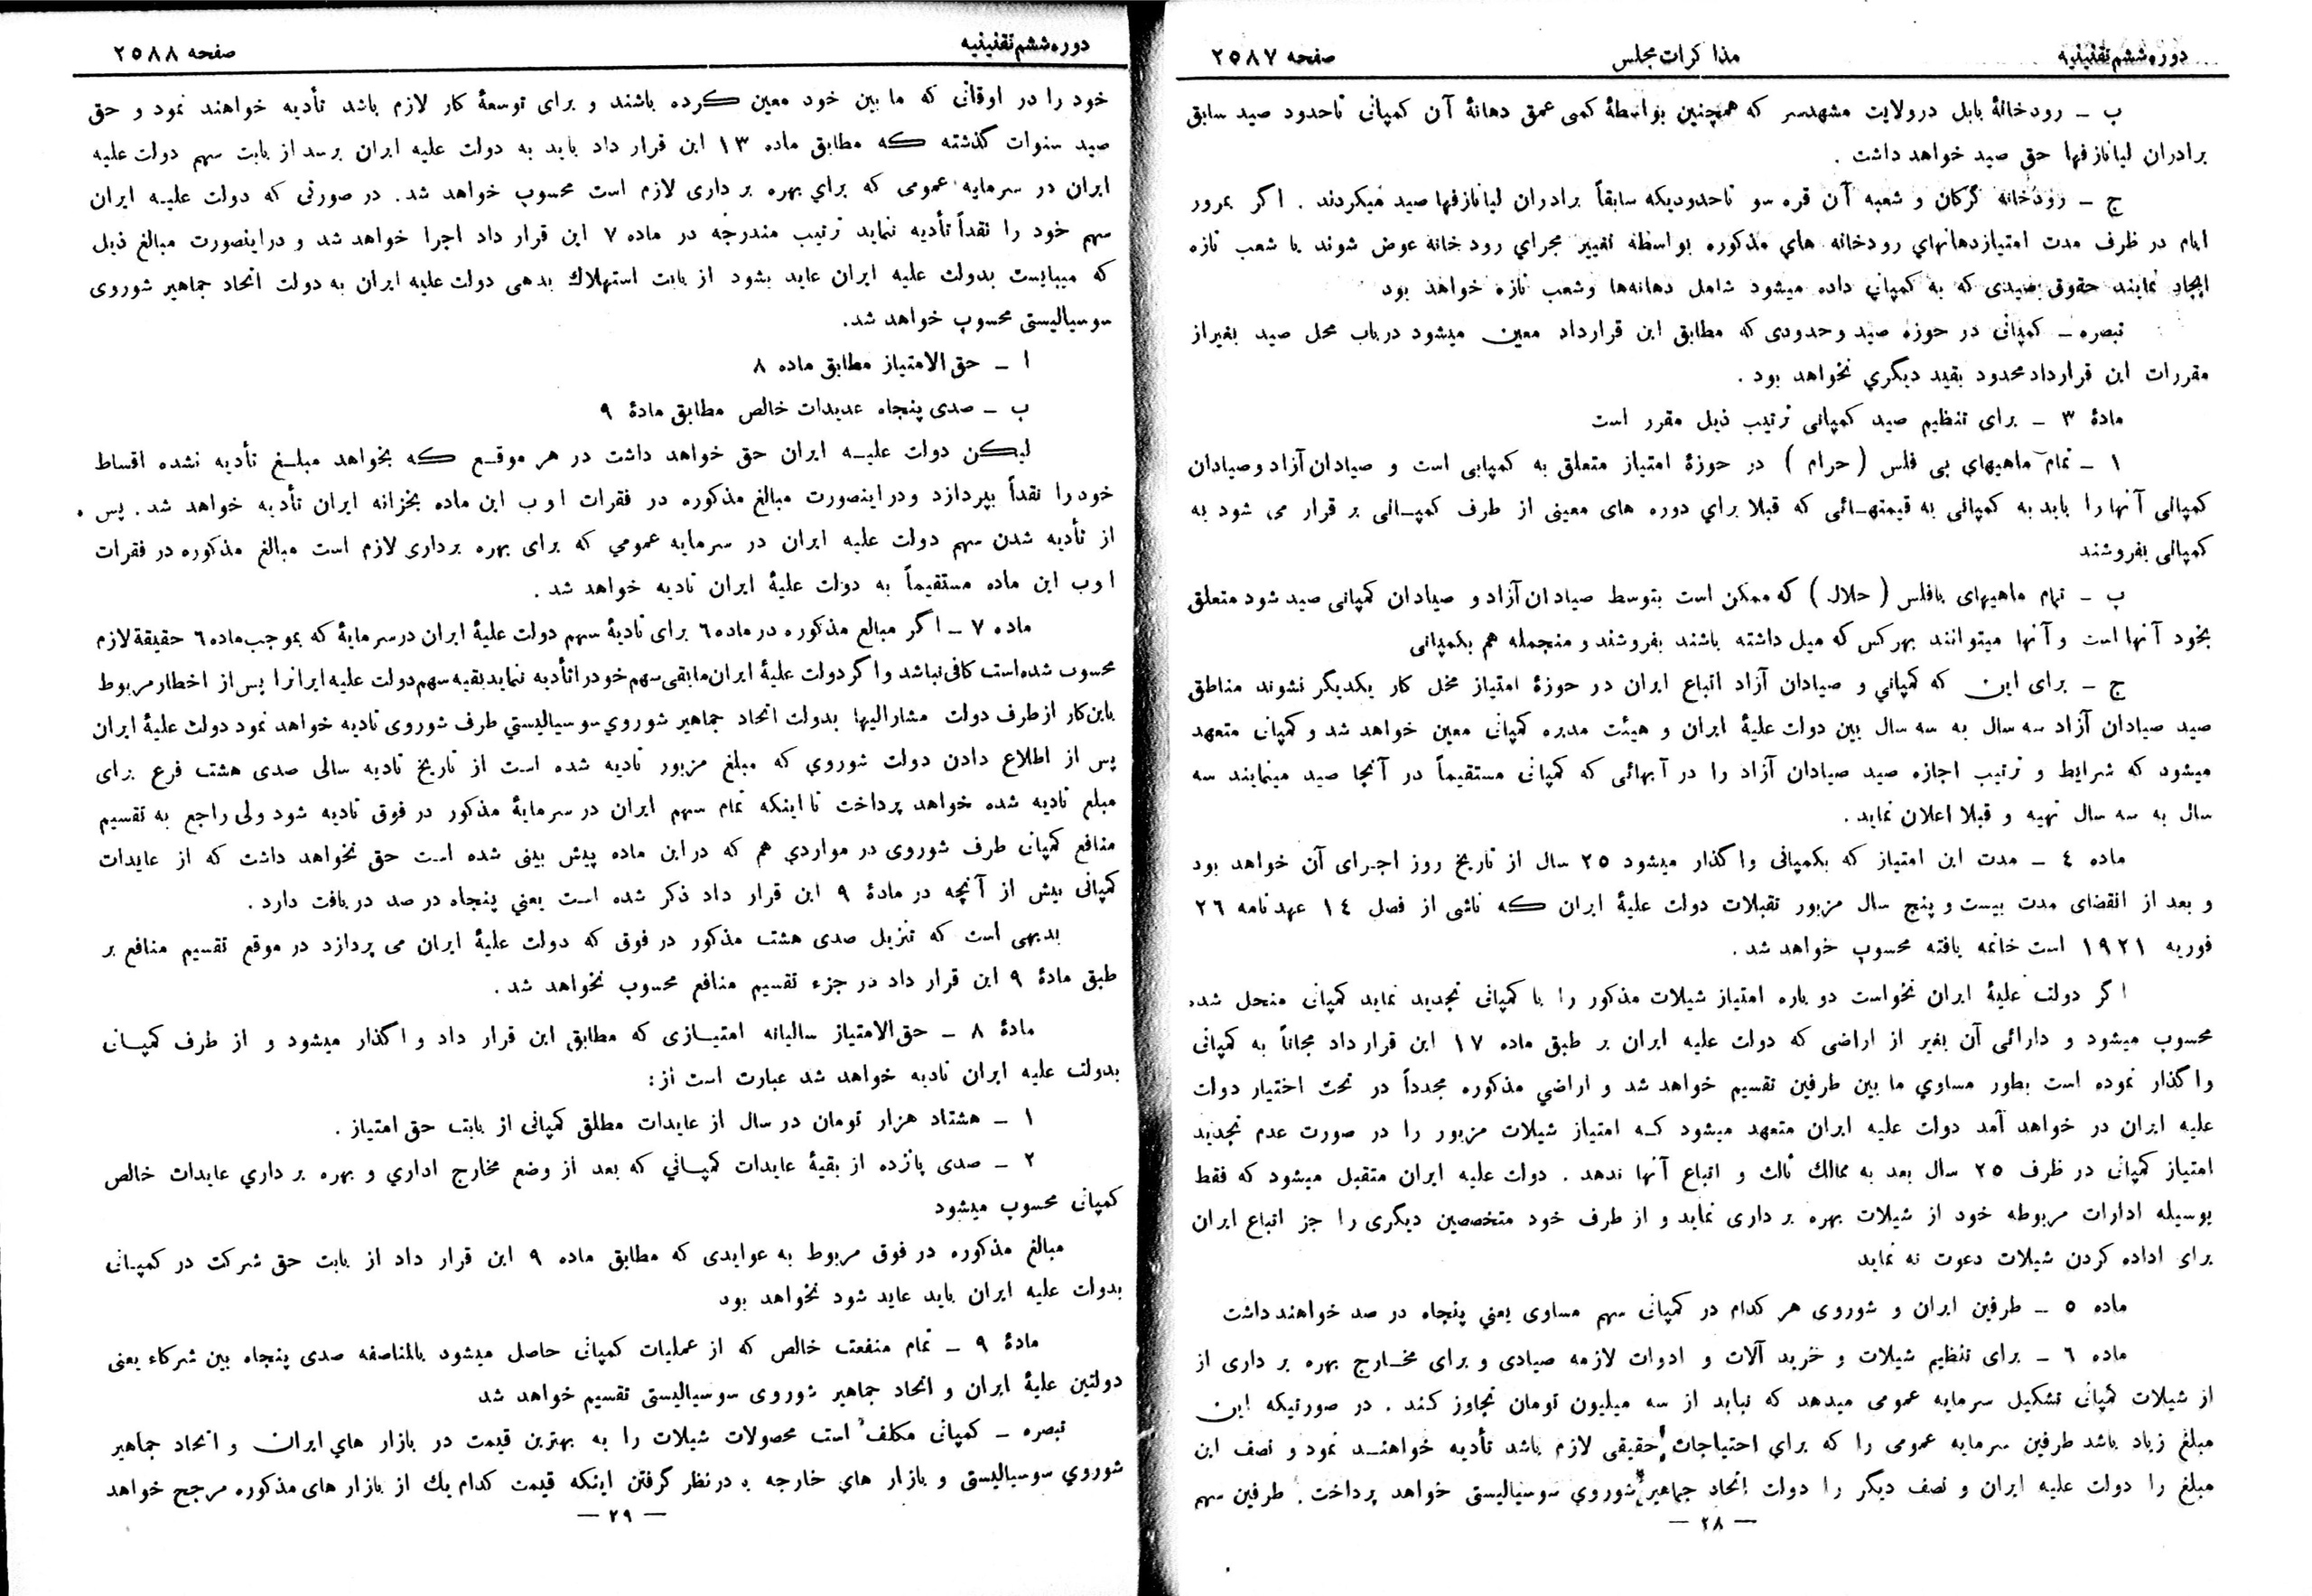 دوره ششم تقنینیه
مذاکرات مجلس
صفحه ۲۵۸۷
ب – رودخانهٔ بابل درولایت مشهدسر که همچنین بواسطهٔ کمی عمق دهانهٔ آن کمپانی تاحدود صید سابق
برادران لیانازفها حق صید خواهد داشت .
ج – رودخانه گرگان و شعبه آن قره سو تاحدودیکه سابقاً برادران لیانازفها صید میکردند . اگر بمرور
ایام در ظرف مدت امتیازدهانهای رودخانه های مذکوره بواسطه تغییر مجرای رود خانه عوض شوند یا شعب تازه
ایجاد نمایند حقوق صیدی که به کمپانی داده میشود شامل دهانه‌ها وشعب تازه خواهد بود
تبصره – کمپانی در حوزه صید وحدودی که مطابق این قرارداد معین میشود درباب محل صید بغیراز
مقررات این قرارداد محدود بقید دیگری نخواهد بود .
مادهٔ ۳ – برای تنظیم صید کمپانی ترتیب ذیل مقرر است
۱ – تمام ماهیهای بی فلس ( حرام ) در حوزهٔ امتیاز متعلق به کمپانی است و صیادان آزاد وصیادان
کمپانی آنها را باید به کمپانی به قیمتهائی که قبلا برای دوره های معینی از طرف کمپانی بر قرار می شود به
کمپانی بفروشند
ب – تمام ماهیهای بافلس ( حلال ) که ممکن است بتوسط صیادان آزاد و صیادان کمپانی صید شود متعلق
بخود آنها است و آنها میتوانند بهرکس که میل داشته باشند بفروشند و منجمله هم بکمپانی
ج – برای این که کمپانی و صیادان آزاد اتباع ایران در حوزهٔ امتیاز مخل کار یکدیگر نشوند مناطق
صید صیادان آزاد سه سال به سه سال بین دولت علیهٔ ایران و هیئت مدیره کمپانی معین خواهد شد و کمپانی متعهد
میشود که شرایط و ترتیب اجازه صید صیادان آزاد را در آبهائی که کمپانی مستقیماً در آنجا صید مینمایند سه
سال به سه سال تهیه و قبلا اعلان نماید .
ماده ٤ – مدت این امتیاز که بکمپانی واگذار میشود ۲۵ سال از تاریخ روز اجرای آن خواهد بود
و بعد از انقضای مدت بیست و پنج سال مزبور تقبلات دولت علیهٔ ایران که ناشی از فصل ۱٤ عهد نامه ۲٦
فوریه ۱۹۲۱ است خاتمه یافته محسوب خواهد شد .
اگر دولت علیهٔ ایران نخواست دو باره امتیاز شیلات مذکور را با کمپانی تجدید نماید کمپانی منحل شده
محسوب میشود و دارائی آن بغیر از اراضی که دولت علیه ایران بر طبق ماده ۱۷ این قرار داد مجاناً به کمپانی
واگذار نموده است بطور مساوی ما بین طرفین تقسیم خواهد شد و اراضی مذکوره مجدداً در تحت اختیار دولت
علیه ایران در خواهد آمد دولت علیه ایران متعهد میشود که امتیاز شیلات مزبور را در صورت عدم تجدید
امتیاز کمپانی در ظرف ۲۵ سال بعد به ممالك ثالث و اتباع آنها ندهد . دولت علیه ایران متقبل میشود که فقط
بوسیله ادارات مربوطه خود از شیلات بهره بر داری نماید و از طرف خود متخصصین دیگری را جز اتباع ایران
برای اداده کردن شیلات دعوت نه نماید
ماده ۵ – طرفین ایران و شوروی هر کدام در کمپانی سهم مساوی یعنی پنجاه در صد خواهند داشت
ماده ٦ – برای تنظیم شیلات و خرید آلات و ادوات لازمه صیادی و برای مخارج بهره بر داری از
از شیلات کمپانی تشکیل سرمایه عمومی میدهد که نباید از سه میلیون تومان تجاوز کند . در صورتیکه این
مبلغ زیاد باشد طرفین سرمایه عمومی را که برای احتیاجات حقیقی لازم باشد تأدیه خواهند نمود و نصف این
مبلغ را دولت علیه ایران و نصف دیگر را دولت اتحاد جماهیر شوروی سوسیالیستی خواهد پرداخت . طرفین سهم
– ۲۸ –
دوره ششم تقنینیه
صفحه ۲۵۸۸
خود را در اوقاتی که ما بین خود معین کرده باشند و برای توسعهٔ کار لازم باشد تأدیه خواهند نمود و حق
صید سنوات گذشته که مطابق ماده ۱۳ این قرار داد باید به دولت علیه ایران برسد از بابت سهم دولت علیه
ایران در سرمایه عمومی که برای بهره بر داری لازم است محسوب خواهد شد . در صورتی که دولت علیه ایران
سهم خود را نقداً تأدیه ننماید ترتیب مندرجه در ماده ۷ این قرار داد اجرا خواهد شد و دراینصورت مبالغ ذیل
که میبایست بدولت علیه ایران عاید بشود از بابت استهلاك بدهی دولت علیه ایران به دولت اتحاد جماهیر شوروی
سوسیالیستی محسوب خواهد شد.
ا – حق الامتیاز مطابق ماده ۸
ب – صدی پنجاه عدیدات خالص مطابق مادهٔ ۹
لیکن دولت علیه ایران حق خواهد داشت در هر موقع که بخواهد مبلغ تأدیه نشده اقساط
خود را نقداً بپردازد ودراینصورت مبالغ مذکوره در فقرات ا و ب این ماده بخزانه ایران تأدیه خواهد شد . پس
از تأدیه شدن سهم دولت علیه ایران در سرمایه عمومی که برای بهره برداری لازم است مبالغ مذکوره در فقرات
ا وب این ماده مستقیماً به دولت علیهٔ ایران تادیه خواهد شد .
ماده ۷ – اگر مبالغ مذکوره در ماده ٦ برای تادیهٔ سهم دولت علیهٔ ایران درسرمایهٔ که بموجب ماده ٦ حقیقة لازم
محسوب شده است کافی نباشد و اگر دولت علیهٔ ایران مابقی سهم خود را تأدیه ننماید بقیه سهم دولت علیه ایرانرا پس از اخطار مربوط
باین کار از طرف دولت مشارالیها بدولت اتحاد جماهیر شوروی سوسیالیستی طرف شوروی تادیه خواهد نمود دولت علیهٔ ایران
پس از اطلاع دادن دولت شوروی که مبلغ مزبور تادیه شده است از تاریخ تادیه سالی صدی هشت فرع برای
مبلغ تادیه شده خواهد پرداخت تا اینکه تمام سهم ایران در سرمایهٔ مذکور در فوق تادیه شود ولی راجع به تقسیم
منافع کمپانی طرف شوروی در مواردی هم که دراین ماده پیش بینی شده است حق نخواهد داشت که از عایدات
کمپانی بیش از آنچه در مادهٔ ۹ این قرار داد ذکر شده است یعنی پنجاه در صد دریافت دارد .
بدیهی است که تنزیل صدی هشت مذکور در فوق که دولت علیهٔ ایران می پردازد در موقع تقسیم منافع بر
طبق مادهٔ ۹ این قرار داد در جزء تقسیم منافع محسوب نخواهد شد .
مادهٔ ۸ – حق الامتیاز سالیانه امتیازی که مطابق این قرار داد واگذار میشود و از طرف کمپانی
بدولت علیه ایران تادیه خواهد شد عبارت است از:
۱ – هشتاد هزار تومان در سال از عایدات مطلق کمپانی از بابت حق امتیاز .
۲ – صدی پانزده از بقیهٔ عایدات کمپانی که بعد از وضع مخارج اداری و بهره بر داری عایدات خالص
کمپانی محسوب میشود
مبالغ مذکوره در فوق مربوط به عوایدی که مطابق ماده ۹ این قرار داد از بابت حق شرکت در کمپانی
بدولت علیه ایران باید عاید شود نخواهد بود
مادهٔ ۹ – تمام منفعت خالص که از عملیات کمپانی حاصل میشود بالمناصفه صدی پنجاه بین شرکاء یعنی
دولتین علیهٔ ایران و اتحاد جماهیر شوروی سوسیالیستی تقسیم خواهد شد
تبصره – کمپانی مکلف است محصولات شیلات را به بهترین قیمت در بازار های ایران و اتحاد جماهیر
شوروی سوسیالیستی و بازار های خارجه بدرنظر گرفتن اینکه قیمت کدام یك از بازار های مذکوره مرجح خواهد
– ۲۹ –